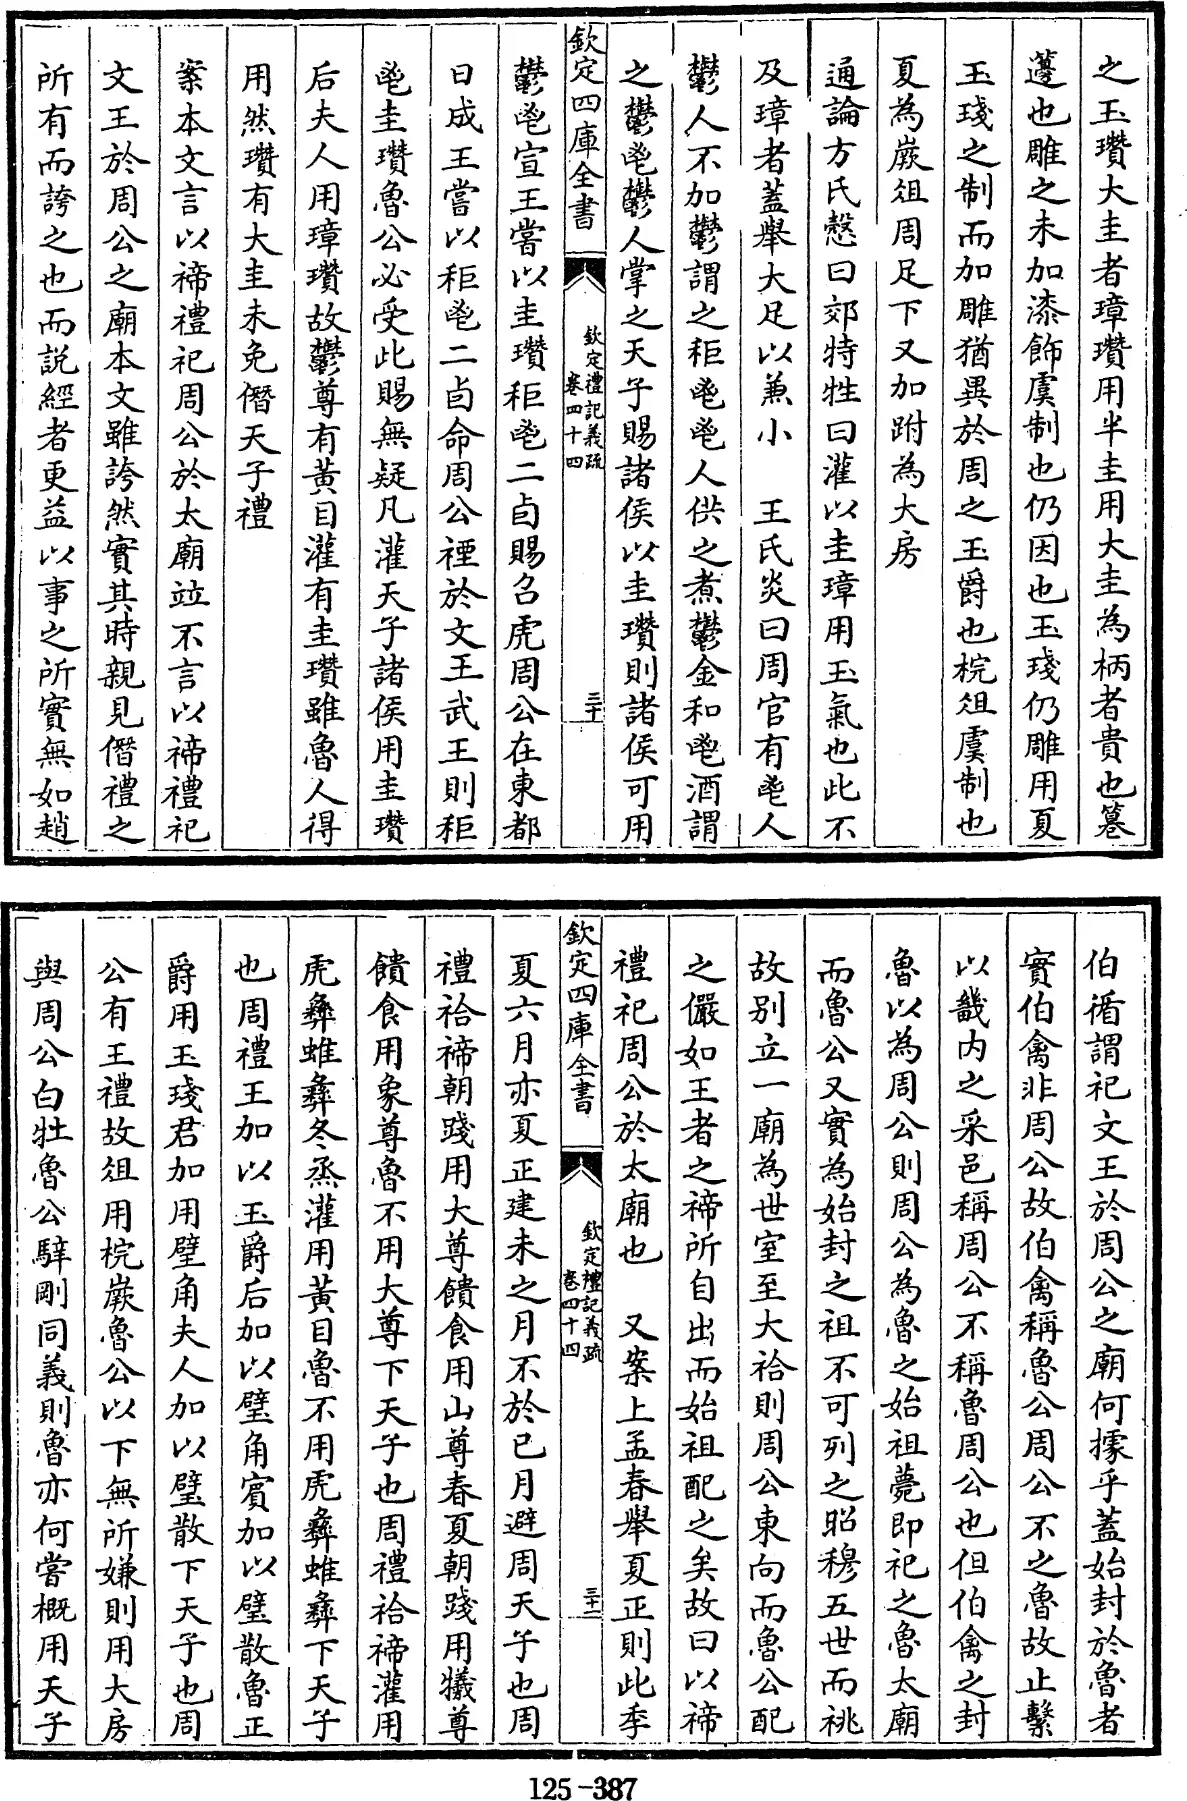 之玉瓚大圭者璋瓚用半圭用大圭為柄者貴也篹
籩也雕之未加漆飾虞制也仍因也玉琖仍雕用夏
玉琖之制而加雕猶異於周之玉爵也梡俎虞制也
夏為嶡俎周足下又加跗為大房
通論方氏慤曰郊特牲曰灌以圭璋用玉氣也此不
及璋者蓋舉大足以兼小　王氏炎曰周官有鬯人
鬱人不加鬱謂之秬鬯鬯人供之煮鬱金和鬯酒謂
之鬱鬯鬱人掌之天子賜諸侯以圭瓚則諸侯可用
欽定四庫全書
欽定禮記義疏
卷四十四
三十
鬱鬯宣王嘗以圭瓚秬鬯二卣賜召虎周公在東都
日成王嘗以秬鬯二卣命周公禋於文王武王則秬
鬯圭瓚魯公必受此賜無疑凡灌天子諸侯用圭瓚
后夫人用璋瓚故鬱尊有黃目灌有圭瓚雖魯人得
用然瓚有大圭未免僭天子禮
案本文言以禘禮祀周公於太廟竝不言以禘禮祀
文王於周公之廟本文雖誇然實其時親見僭禮之
所有而誇之也而説經者更益以事之所實無如趙
伯循謂祀文王於周公之廟何據乎蓋始封於魯者
實伯禽非周公故伯禽稱魯公周公不之魯故止繫
以畿内之采邑稱周公不稱魯周公也但伯禽之封
魯以為周公則周公為魯之始祖薨即祀之魯太廟
而魯公又實為始封之祖不可列之昭穆五世而祧
故别立一廟為世室至大祫則周公東向而魯公配
之儼如王者之禘所自出而始祖配之矣故曰以禘
禮祀周公於太廟也　又案上孟春舉夏正則此季
欽定四庫全書
欽定禮記義疏
卷四十四
三十一
夏六月亦夏正建未之月不於巳月避周天子也周
禮祫禘朝踐用大尊饋食用山尊春夏朝踐用犧尊
饋食用象尊魯不用大尊下天子也周禮祫禘灌用
虎彝蜼彝冬烝灌用黃目魯不用虎彝蜼彝下天子
也周禮王加以玉爵后加以璧角賓加以璧散魯正
爵用玉琖君加用璧角夫人加以璧散下天子也周
公有王禮故俎用梡嶡魯公以下無所嫌則用大房
與周公白牡魯公騂剛同義則魯亦何嘗概用天子
125-387